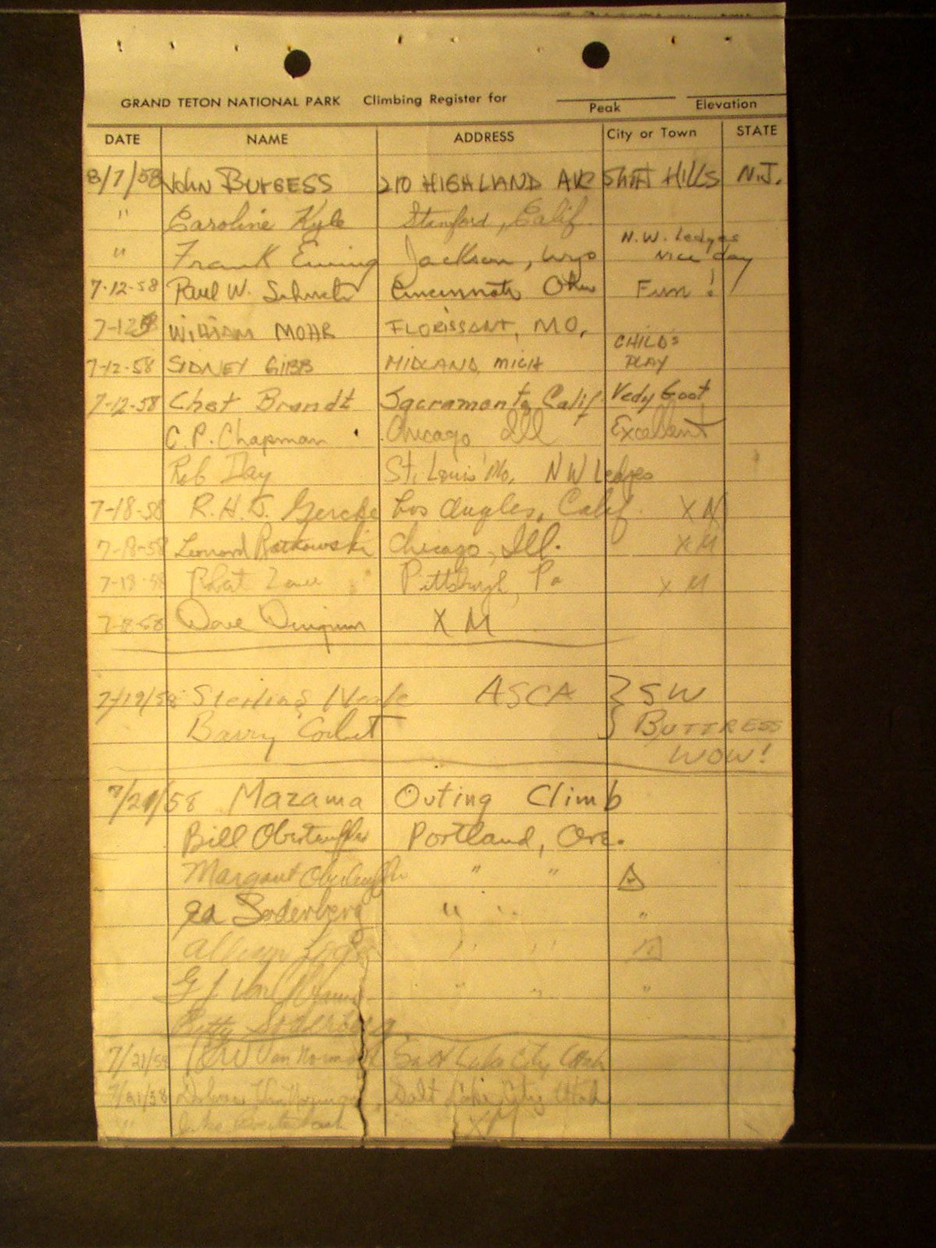 GRAND TETON NATIONAL PARK Climbing Register for
Peak Elevation
DATE NAME ADDRESS City or Town STATE
8/7/58 John BURGESS 210 HIGHLAND AVE HILLS N.J.
" Caroline Kyle Stanford, Calif.
" Frank Ewing Jackson, Wyo N.W. Ledges
Nice day
7-12-58 Paul W. Cincinnati Ohio Fun!
7-12 WILLIAM MOHR FLORISSANT, MO. CHILD'S
7-12-58 SIDNEY GIBB MIDLAND, MICH PLAY
7-12-58 Chet Brandt Sacramento, Calif Vedy Goot
C.P. Chapman Chicago Ill Excellent
Rob Day St. Louis Mo. N W Ledges
7-18-58 R.H.J. Los Angeles, Calif. X M
7-18-58 Leonard Chicago, Ill. X M
7-18-58 Pittsburgh, Pa X M
7-8-58 Dave X M
7/19/58 Sterling ASCA } SW
Barry Corbet BUTTRESS
WOW!
7/21/58 Mazama Outing Climb
Bill Portland, Ore.
Margaret " "
Ed Soderberg " " "
" "
G J " " "
Betty Soderberg
7/21/58 Van Norman Salt Lake City Utah
7/21/58 Salt Lake City Utah
" XM